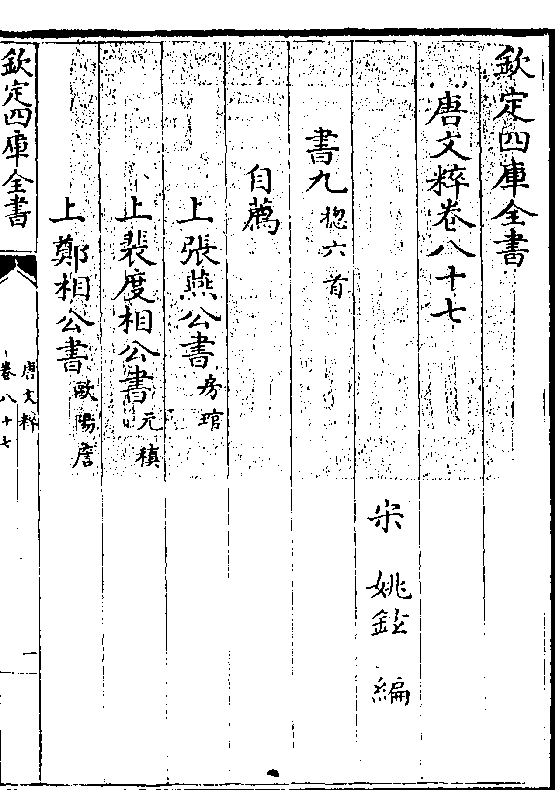 欽定四庫全書
唐文粹卷八十七
宋 姚鉉 編
書九揔六首
自薦
上張燕公書房琯
上裴度相公書元稹
上鄭相公書歐陽詹
欽定四庫全書
唐文粹
卷八十七
一